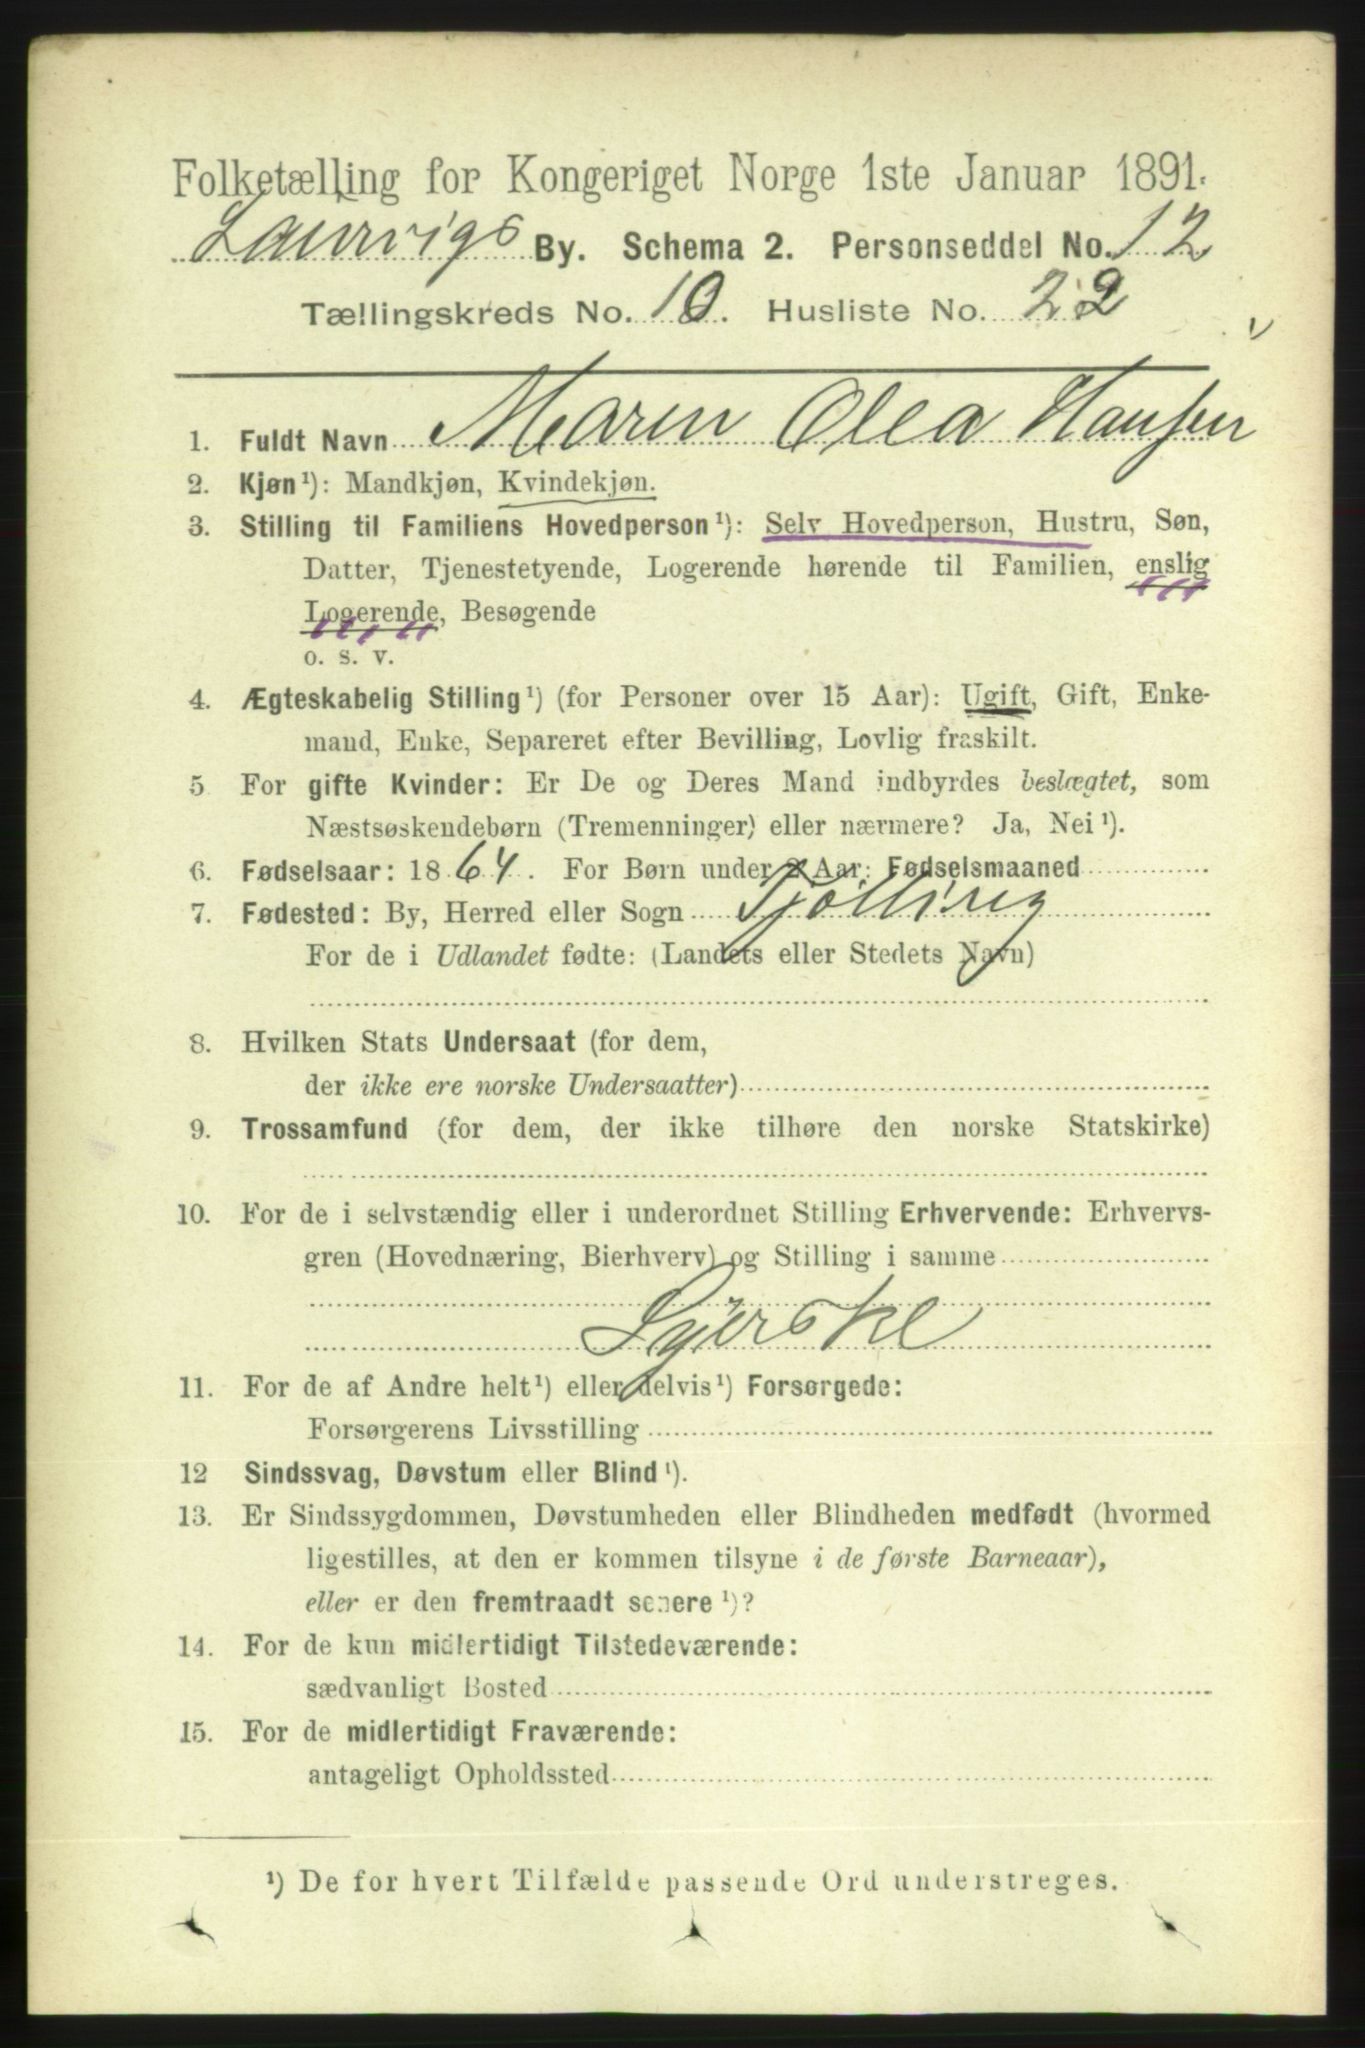 Folketælling for Kongeriget Norge 1ste Januar 1891.
Laurvigs By. Schema 2. Personseddel No. 12
Tællingskreds No. 10. Husliste No. 22
1. Fuldt Navn Maren Olea Hansen
2. Kjøn¹): Mandkjøn, Kvindekjøn.
3. Stilling til Familiens Hovedperson¹): Selv Hovedperson, Hustru, Søn,
Datter, Tjenestetyende, Logerende hørende til Familien, enslig
Logerende, Besøgende
o. s. v.
4. Ægteskabelig Stilling¹) (for Personer over 15 Aar): Ugift, Gift, Enke-
mand, Enke, Separeret efter Bevilling, Lovlig fraskilt.
5 For gifte Kvinder: Er De og Deres Mand indbyrdes beslægtet, som
Næstsøskendebørn (Tremenninger) eller nærmere? Ja, Nei¹).
6. Fødselsaar: 1864. For Børn under 2 Aar: Fødselsmaaned
7. Fødested: By, Herred eller Sogn Tjølling
For de i Udlandet fødte: (Landets eller Stedets Navn)
8. Hvilken Stats Undersaat (for dem,
der ikke ere norske Undersaatter)
9. Trossamfund (for dem, der ikke tilhøre den norske Statskirke)
10. For de i selvstændig eller i underordnet Stilling Erhvervende: Erhvervs-
gren (Hovednæring, Bierhverv) og Stilling i samme
Syerske
11. For de af Andre helt¹) eller delvis¹) Forsørgede:
Forsørgerens Livsstilling
12 Sindssvag, Døvstum eller Blind¹).
13. Er Sindssygdommen, Døvstumheden eller Blindheden medfødt (hvormed
ligestilles, at den er kommen tilsyne i de første Barneaar),
eller er den fremtraadt senere¹)?
14. For de kun midlertidigt Tilstedeværende:
sædvanligt Bosted
15. For de midlertidigt Fraværende:
antageligt Opholdssted
¹) De for hvert Tilfælde passende Ord understreges.